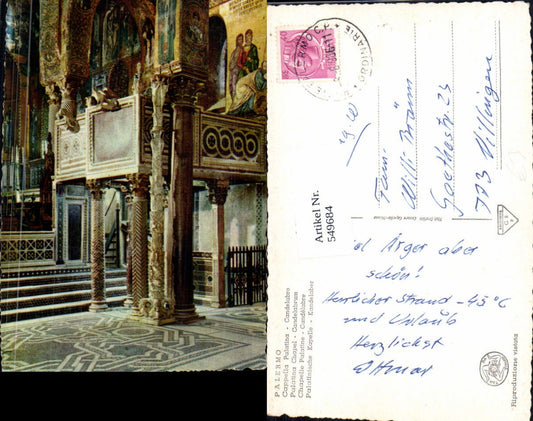 PALERMO
Cappella Palatina - Candelabro
Palatina Chapel - Candelabrum
Chapelle Palatine - Candélabre
Palatinische Kapelle - Kandelaber
Artikel Nr.
549684
Fam.
Willi Bräun
Goethestr. 23
773 Villingen
viel Ärger aber
schön!
Herrlicher Strand - 45°C
und Urlaub
Herzlichst
Ottmar
Riproduzione vietata